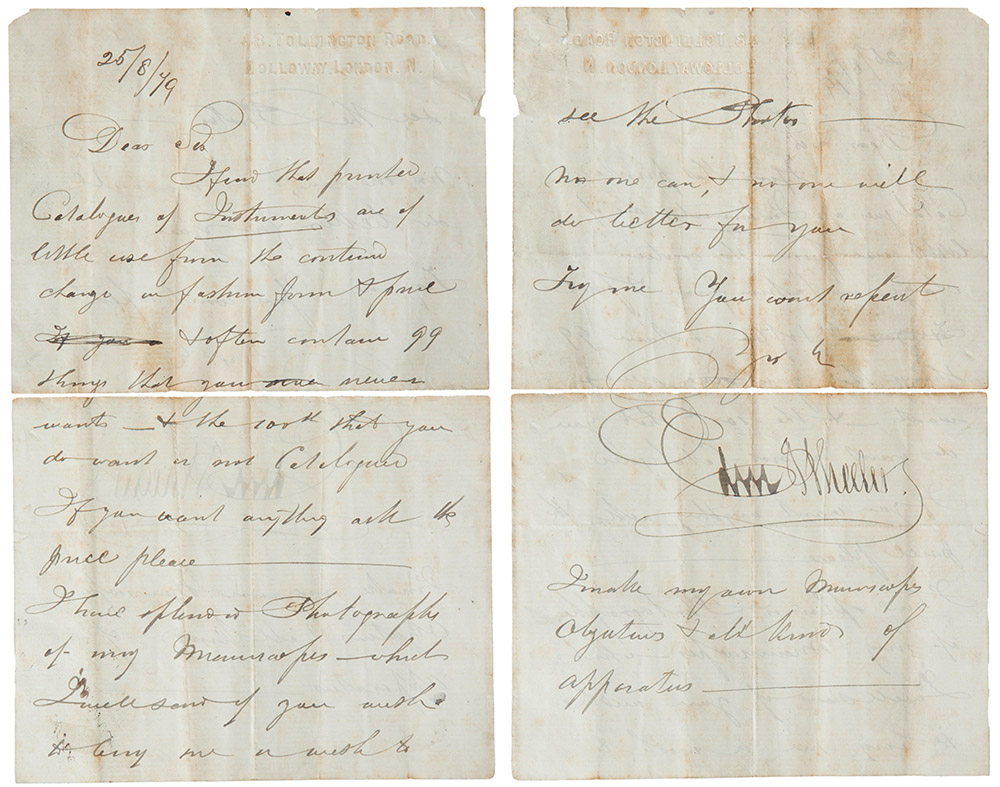 48. TOLLINGTON ROAD.
HOLLOWAY. LONDON. N.
25/8/79
Dear Sir
I find that printed
Catalogues of Instruments are of
little use from the continued
change in fashion form & price
If you & often contain 99
things that you never
wants — & the 100th that you
do want is not Catalogued
If you want anything ask the
price please
I have splendid Photographs
of my Microscopes which
I will send if you wish
to buy me or wish to
see the Photos
No one can, & no one will
do better for you
Try me You wont repent
Yrs
Edm Wheeler.
I make my own Microscopes
Objectives & all kinds of
apparatus